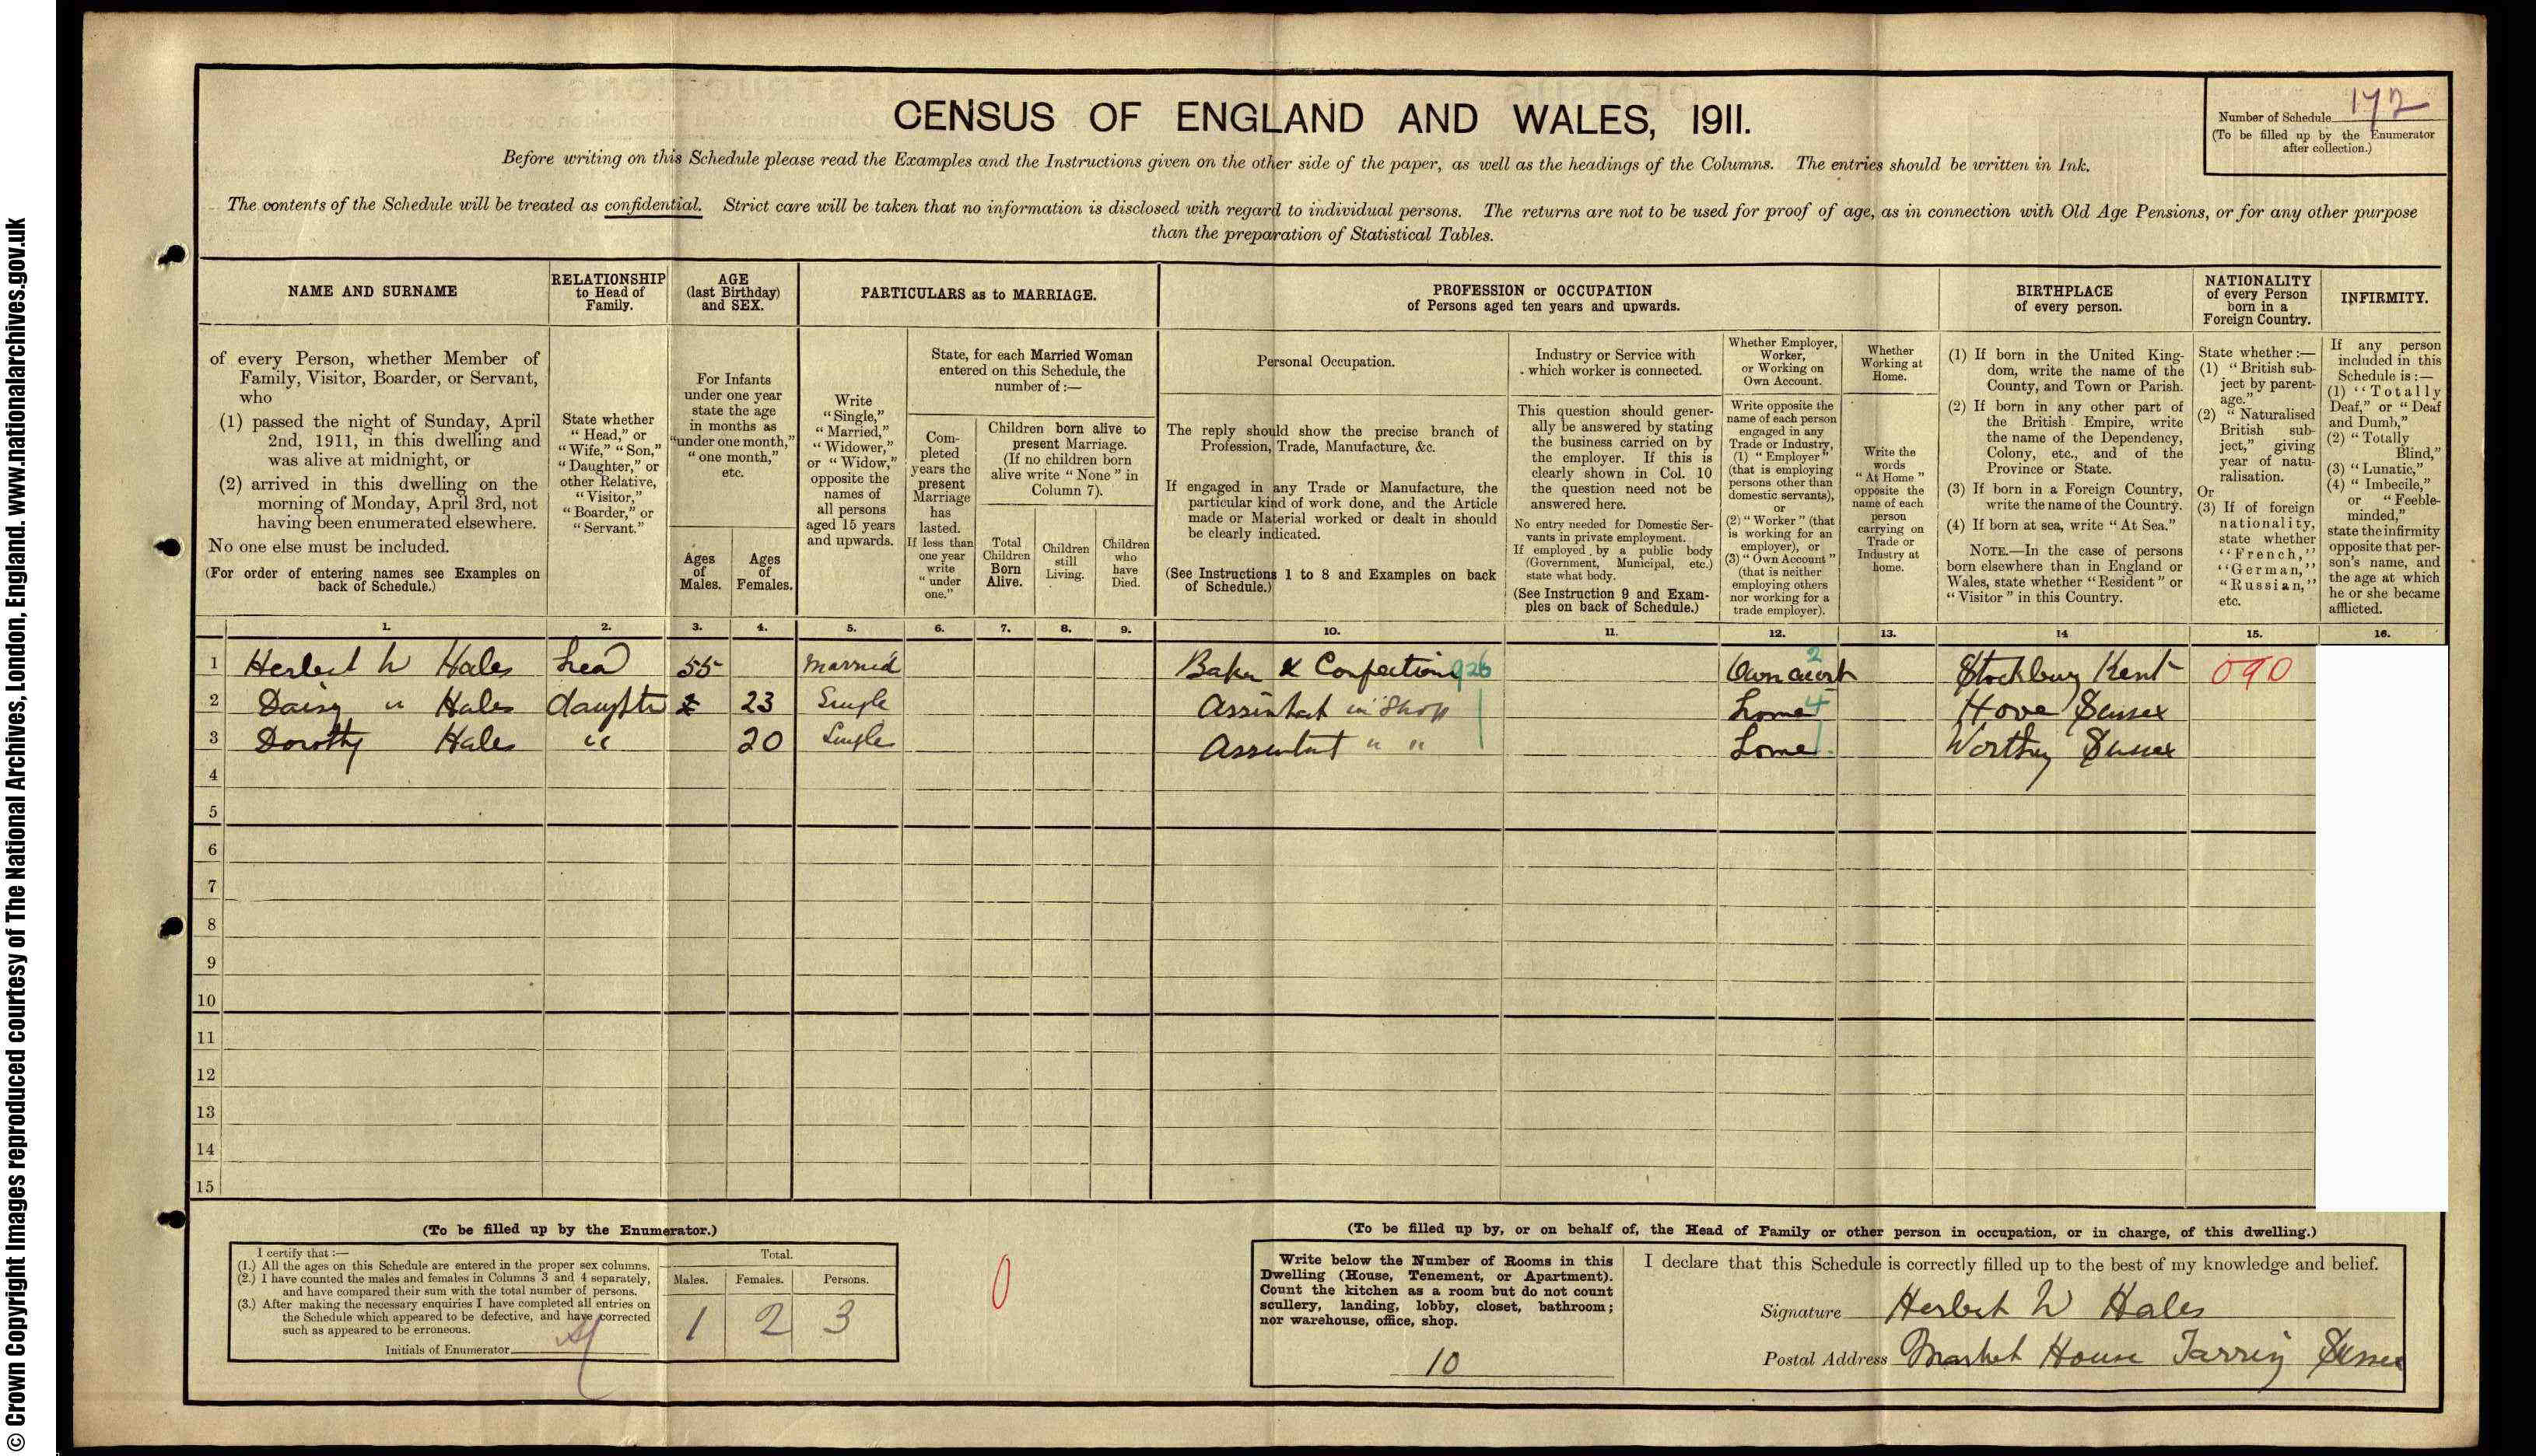 CENSUS OF ENGLAND AND WALES, 1911.
Number of Schedule 172
(To be filled up by the Enumerator
after collection.)
Before writing on this Schedule please read the Examples and the Instructions given on the other side of the paper, as well as the headings of the Columns. The entries should be written in Ink.
The contents of the Schedule will be treated as confidential. Strict care will be taken that no information is disclosed with regard to individual persons. The returns are not to be used for proof of age, as in connection with Old Age Pensions, or for any other purpose
than the preparation of Statistical Tables.
NAME AND SURNAME
of every Person, whether Member of
Family, Visitor, Boarder, or Servant,
who
(1) passed the night of Sunday, April
2nd, 1911, in this dwelling and
was alive at midnight, or
(2) arrived in this dwelling on the
morning of Monday, April 3rd, not
having been enumerated elsewhere.
No one else must be included.
(For order of entering names see Examples on
back of Schedule.)
RELATIONSHIP
to Head of
Family.
State whether
"Head," or
"Wife," "Son,"
"Daughter," or
other Relative,
"Visitor,"
"Boarder," or
"Servant."
AGE
(last Birthday)
and SEX.
For Infants
under one year
state the age
in months as
"under one month,"
"one month,"
etc.
Ages
of
Males.
Ages
of
Females.
PARTICULARS as to MARRIAGE.
Write
"Single,"
"Married,"
"Widower,"
or "Widow,"
opposite the
names of
all persons
aged 15 years
and upwards.
State, for each Married Woman
entered on this Schedule, the
number of :—
Com-
pleted
years the
present
Marriage
has
lasted.
If less than
one year
write
"under
one."
Children born alive to
present Marriage.
(If no children born
alive write "None" in
Column 7).
Total
Children
Born
Alive.
Children
still
Living.
Children
who
have
Died.
PROFESSION or OCCUPATION
of Persons aged ten years and upwards.
Personal Occupation.
The reply should show the precise branch of
Profession, Trade, Manufacture, &c.
If engaged in any Trade or Manufacture, the
particular kind of work done, and the Article
made or Material worked or dealt in should
be clearly indicated.
(See Instructions 1 to 8 and Examples on back
of Schedule.)
Industry or Service with
which worker is connected.
This question should gener-
ally be answered by stating
the business carried on by
the employer. If this is
clearly shown in Col. 10
the question need not be
answered here.
No entry needed for Domestic Ser-
vants in private employment.
If employed by a public body
(Government, Municipal, etc.)
state what body.
(See Instruction 9 and Exam-
ples on back of Schedule.)
Whether Employer,
Worker,
or Working on
Own Account.
Write opposite the
name of each person
engaged in any
Trade or Industry,
(1) "Employer"
(that is employing
persons other than
domestic servants),
or
(2) "Worker" (that
is working for an
employer), or
(3) "Own Account"
(that is neither
employing others
nor working for a
trade employer).
Whether
Working at
Home.
Write the
words
"At Home"
opposite the
name of each
person
carrying on
Trade or
Industry at
home.
BIRTHPLACE
of every person.
(1) If born in the United King-
dom, write the name of the
County, and Town or Parish.
(2) If born in any other part of
the British Empire, write
the name of the Dependency,
Colony, etc., and of the
Province or State.
(3) If born in a Foreign Country,
write the name of the Country.
(4) If born at sea, write "At Sea."
NOTE.—In the case of persons
born elsewhere than in England or
Wales, state whether "Resident" or
"Visitor" in this Country.
NATIONALITY
of every Person
born in a
Foreign Country.
State whether :—
(1) "British sub-
ject by parent-
age."
(2) "Naturalised
British sub-
ject," giving
year of natu-
ralisation.
Or
(3) If of foreign
nationality,
state whether
"French,"
"German,"
"Russian,"
etc.
INFIRMITY.
If any person
included in this
Schedule is :—
(1) "Totally
Deaf," or "Deaf
and Dumb,"
(2) "Totally
Blind,"
(3) "Lunatic,"
(4) "Imbecile,"
or "Feeble-
minded,"
state the infirmity
opposite that per-
son's name, and
the age at which
he or she became
afflicted.
1. 2. 3. 4. 5. 6. 7. 8. 9. 10. 11. 12. 13. 14 15. 16.
1 Herbert W Hales head 55 Married Baker & Confectioner 926 Own account 2 Stockbury Kent 090
2 Daisy " Hales daughter 23 Single Assistant in Shop Home 4 Hove Sussex
3 Dorothy Hales " 20 Single Assistant " " Home Worthing Sussex
4
5
6
7
8
9
10
11
12
13
14
15
(To be filled up by the Enumerator.)
I certify that :—
(1.) All the ages on this Schedule are entered in the proper sex columns.
(2.) I have counted the males and females in Columns 3 and 4 separately,
and have compared their sum with the total number of persons.
(3.) After making the necessary enquiries I have completed all entries on
the Schedule which appeared to be defective, and have corrected
such as appeared to be erroneous.
Initials of Enumerator
Total.
Males. Females. Persons.
1 2 3
0
(To be filled up by, or on behalf of, the Head of Family or other person in occupation, or in charge, of this dwelling.)
Write below the Number of Rooms in this
Dwelling (House, Tenement, or Apartment).
Count the kitchen as a room but do not count
scullery, landing, lobby, closet, bathroom;
nor warehouse, office, shop.
10
I declare that this Schedule is correctly filled up to the best of my knowledge and belief.
Signature Herbert W Hales
Postal Address Market House Tarring Sussex
© Crown Copyright Images reproduced courtesy of The National Archives, London, England. www.nationalarchives.gov.uk